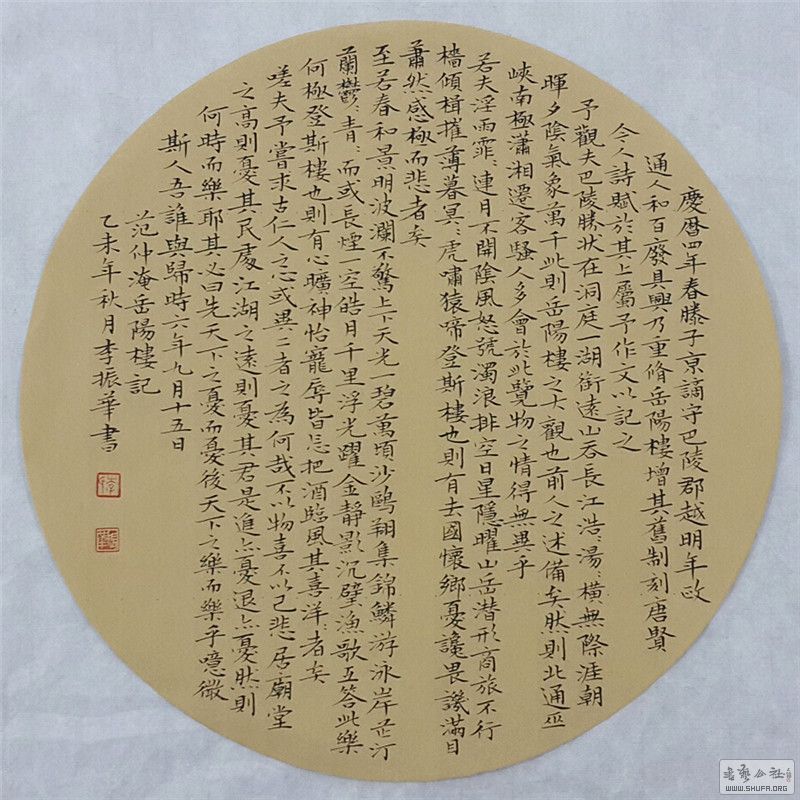 慶曆四年春滕子京謫守巴陵郡越明年政
通人和百廢具興乃重脩岳陽樓增其舊制刻唐賢
今人詩賦於其上屬予作文以記之
予觀夫巴陵勝狀在洞庭一湖銜遠山吞長江浩:湯:橫無際涯朝
暉夕陰氣象萬千此則岳陽樓之大觀也前人之述備矣然則北通巫
峽南極瀟湘遷客騷人多會於此覽物之情得無異乎
若夫淫雨霏:連月不開陰風怒號濁浪排空日星隱曜山岳潛形商旅不行
檣傾楫摧薄暮冥:虎嘯猿啼登斯樓也則有去國懷鄉憂讒畏譏滿目
蕭然感極而悲者矣
至若春和景明波瀾不驚上下天光一碧萬頃沙鷗翔集錦鱗游泳岸芷汀
蘭鬱:青:而或長煙一空皓月千里浮光躍金靜影沉璧漁歌互答此樂
何極登斯樓也則有心曠神怡寵辱皆忘把酒臨風其喜洋:者矣
嗟夫予嘗求古仁人之心或異二者之為何哉不以物喜不以己悲居廟堂
之高則憂其民處江湖之遠則憂其君是進亦憂退亦憂然則
何時而樂耶其必曰先天下之憂而憂後天下之樂而樂乎噫微
斯人吾誰與歸時六年九月十五日
范仲淹岳陽樓記
乙未年秋月李振華書
WWW.SHUFA.ORG